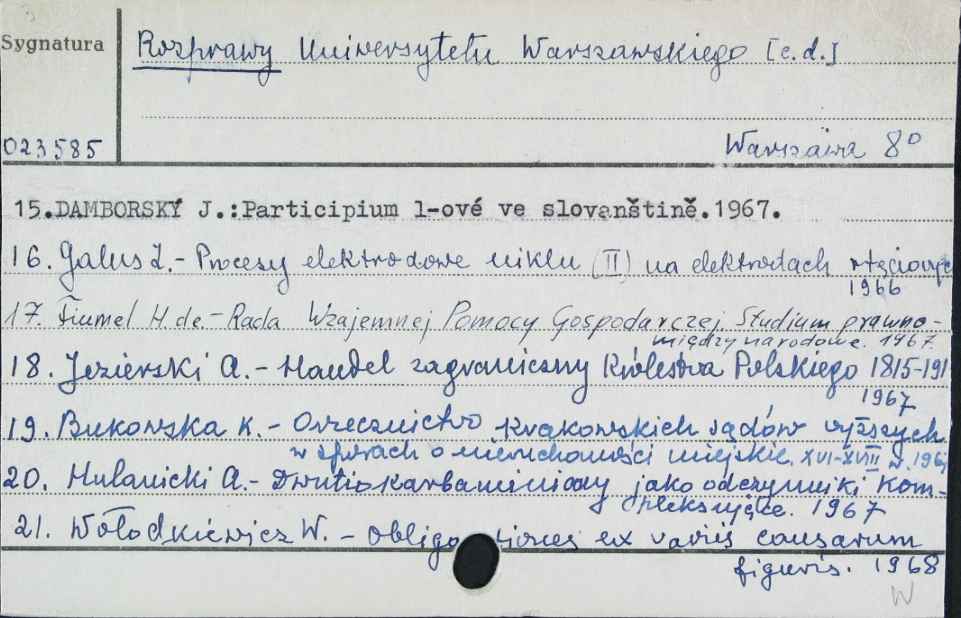 Sygnatura
Rozprawy Uniwersytetu Warszawskiego [c.d.]
023585
Warszawa 8°
15.DAMBORSKÝ J.:Participium l-ové ve slovanštině.1967.
16. Galus Z.- Procesy elektrodowe niklu (II) na elektrodach rtęciowyc
1966
17. Fiumel H. de.- Rada Wzajemnej Pomocy Gospodarczej. Studium prawno-
międzynarodowe. 1967
18. Jezierski A.- Handel zagraniczny Królestwa Polskiego 1815-191
1967
19. Bukowska K.- Orzecznictwo krakowskich sądów wyższych
w sporach o nieruchomości miejskie. XVI-XVIII w. 196
20. Hulanicki A.- Dwutiokarbaminiany jako odczynniki kom-
pleksujące. 1967
21. Wołodkiewicz W. - Obligationes ex variis causarum
figuris. 1968
W